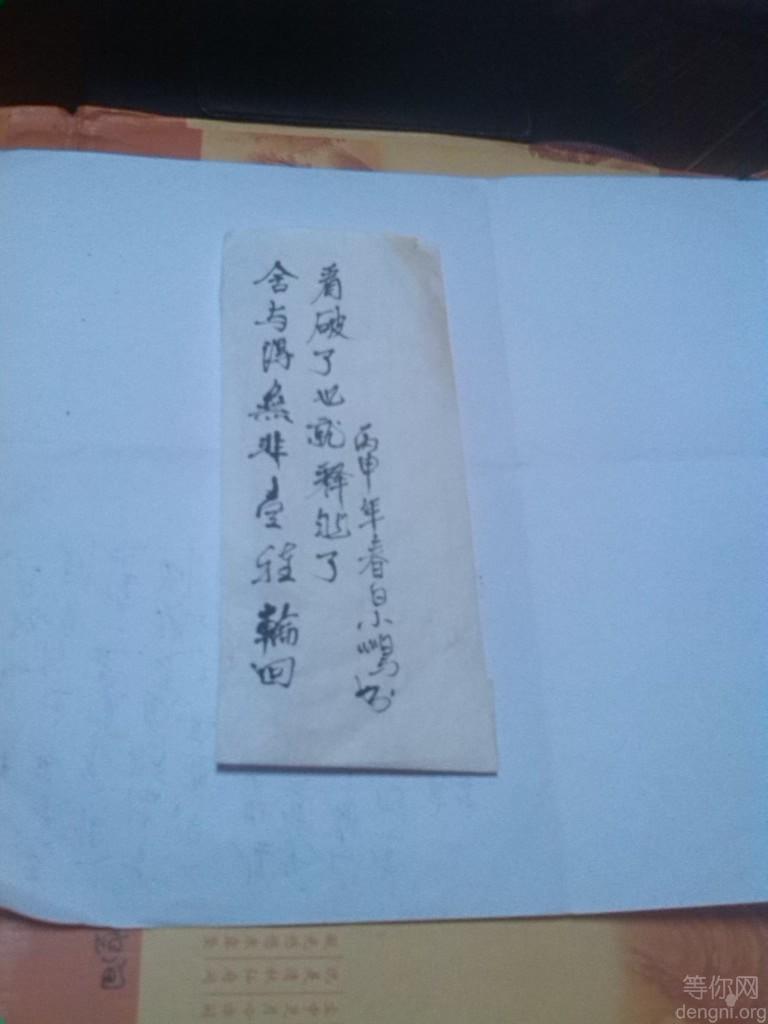 舍与得無非壹種輪回
看破了也就释然了
丙申年春白小鶯书
等你网
dengni.org